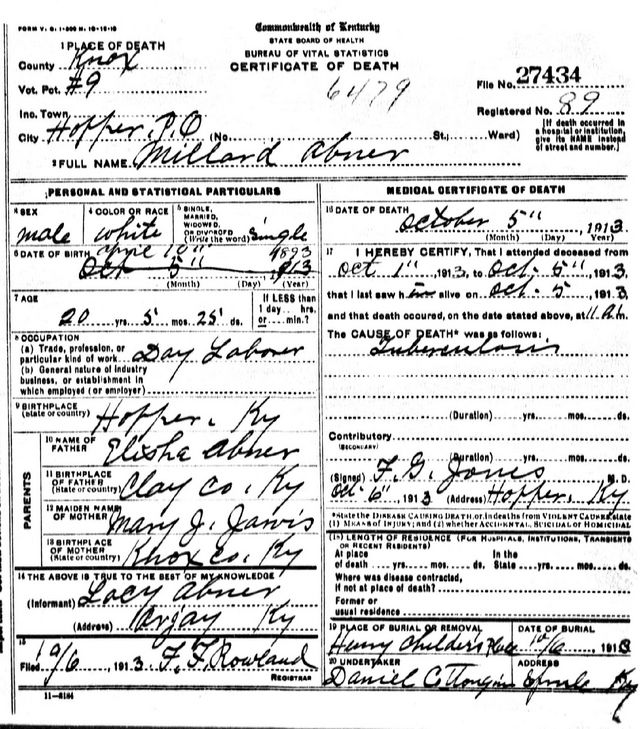 FORM V. S. 1-
Commonwealth of Kentucky
STATE BOARD OF HEALTH
BUREAU OF VITAL STATISTICS
CERTIFICATE OF DEATH
1 PLACE OF DEATH
County Knox
Vot. Pct. #9
6479
File No. 27434
Registered No. 89
Inc. Town
City Hopper, P.O (No. St.; Ward)
[If death occurred in a hospital or institution, give its NAME instead of street and number.]
2 FULL NAME Millard Abner
PERSONAL AND STATISTICAL PARTICULARS
3 SEX
male
4 COLOR OR RACE
white
5 SINGLE, MARRIED, WIDOWED, OR DIVORCED (Write the word) Single
6 DATE OF BIRTH April 10" 1893
Oct 5" 1913
(Month) (Day) (Year)
7 AGE
20 yrs. 5 mos. 25 ds.
If LESS than 1 day.. hrs. or.... min.?
8 OCCUPATION
(a) Trade, profession, or particular kind of work Day Laborer
(b) General nature of industry business, or establishment in which employed (or employer)
9 BIRTHPLACE (State or country) Hopper, Ky
PARENTS
10 NAME OF FATHER Elisha Abner
11 BIRTHPLACE OF FATHER (State or country) Clay Co. Ky
12 MAIDEN NAME OF MOTHER Mary J. Jarvis
13 BIRTHPLACE OF MOTHER (State or country) Knox co, Ky
14 THE ABOVE IS TRUE TO THE BEST OF MY KNOWLEDGE
(Informant) Lacy Abner
(Address) Arjay Ky
15
Filed 1913 F. F. Rowland
REGISTRAR
11-6184
MEDICAL CERTIFICATE OF DEATH
16 DATE OF DEATH
October 5" 1913
(Month) (Day) (Year)
17 I HEREBY CERTIFY, That I attended deceased from
Oct 1", 1913, to Oct. 5", 1913,
that I last saw h im alive on Oct. 5, 1913,
and that death occured, on the date stated above, at
The CAUSE OF DEATH* was as follows:
Tuberculosis
(Duration) yrs. mos. ds.
Contributory
(SECONDARY)
(Duration) yrs. mos. ds.
(Signed) F. G. Jones M. D.
Oct. 6", 1913 (Address) Hopper, Ky
*State the DISEASE CAUSING DEATH, or, in deaths from VIOLENT CAUSES, state (1) MEANS OF INJURY; and (2) whether ACCIDENTAL, SUICIDAL OR HOMICIDAL
18 LENGTH OF RESIDENCE (FOR HOSPITALS, INSTITUTIONS, TRANSIENTS OR RECENT RESIDENTS)
At place of death yrs. mos. ds. In the State yrs. mos. ds.
Where was disease contracted, if not at place of death?
Former or usual residence
19 PLACE OF BURIAL OR REMOVAL
Henry Childers Place
DATE OF BURIAL
10/6, 1913
20 UNDERTAKER
Daniel Cottongim
ADDRESS
Ky